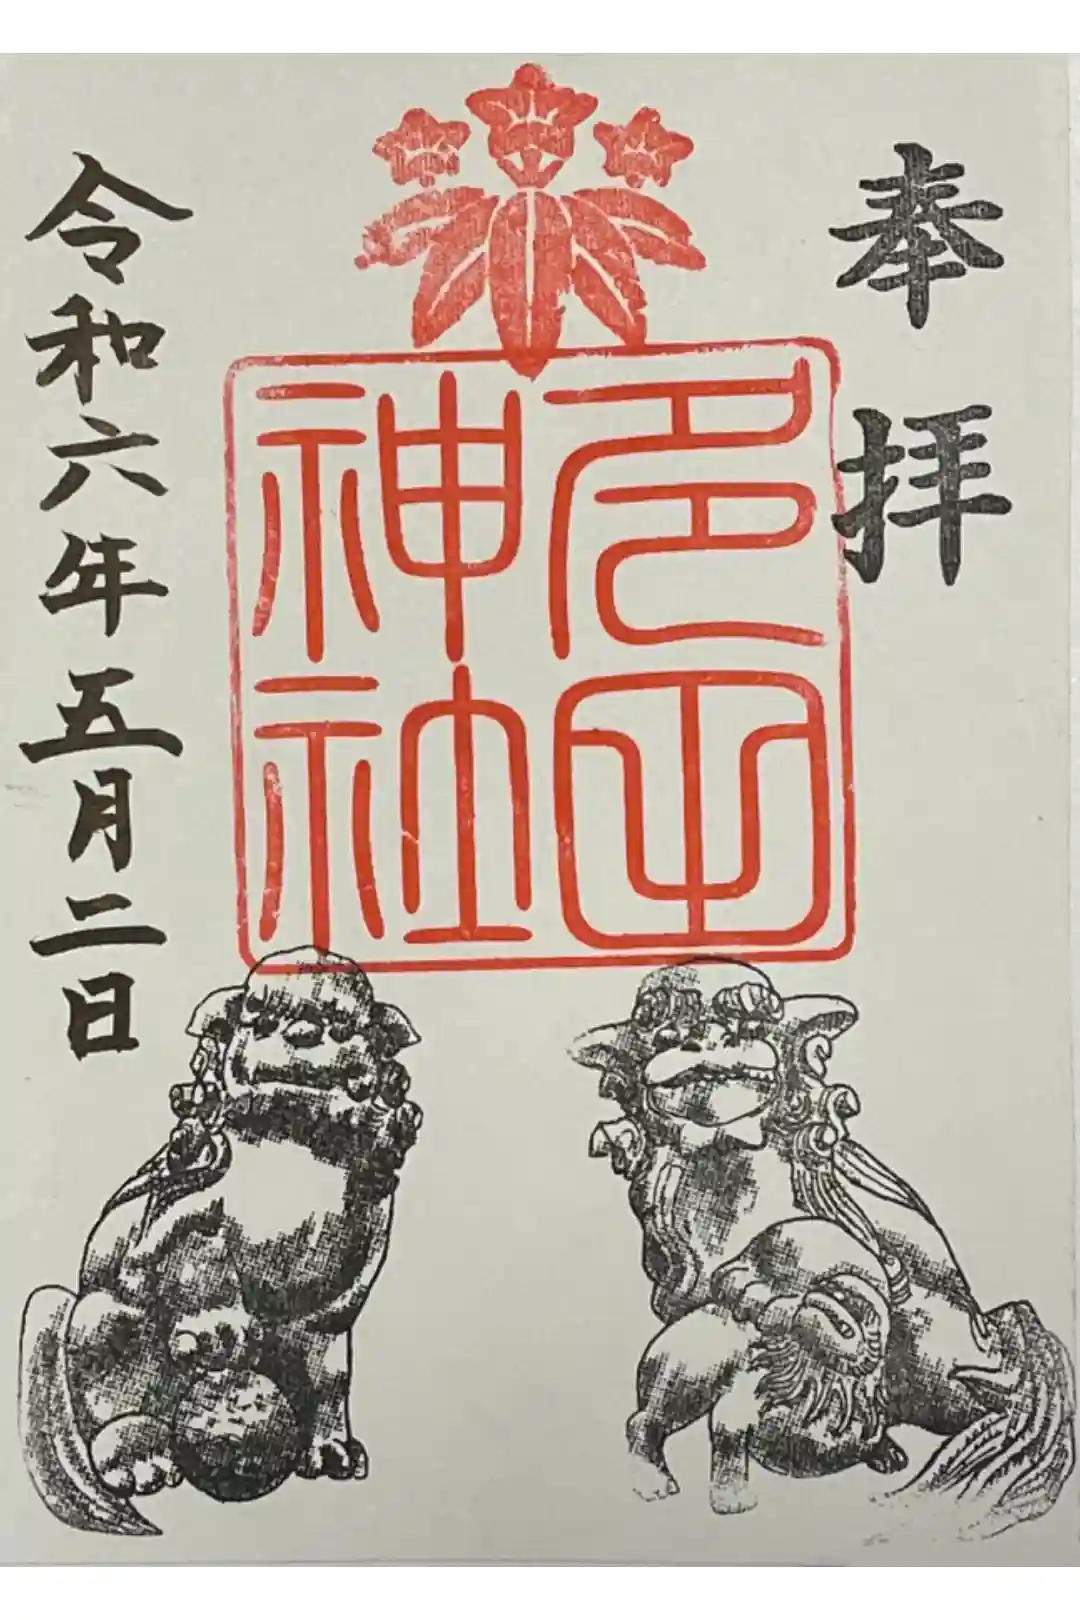 奉拝
多田
神社
令和六年五月二日